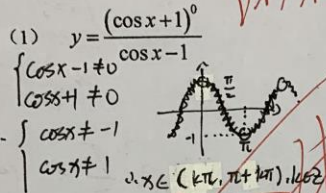 (1) y = (cos x + 1)⁰ / (cos x − 1)
{ cosx − 1 ≠ 0
cosx + 1 ≠ 0
{ cosx ≠ −1
cosx ≠ 1
π/2
-1
π
∴ x ∈ (kπ, π + kπ), k∈Z